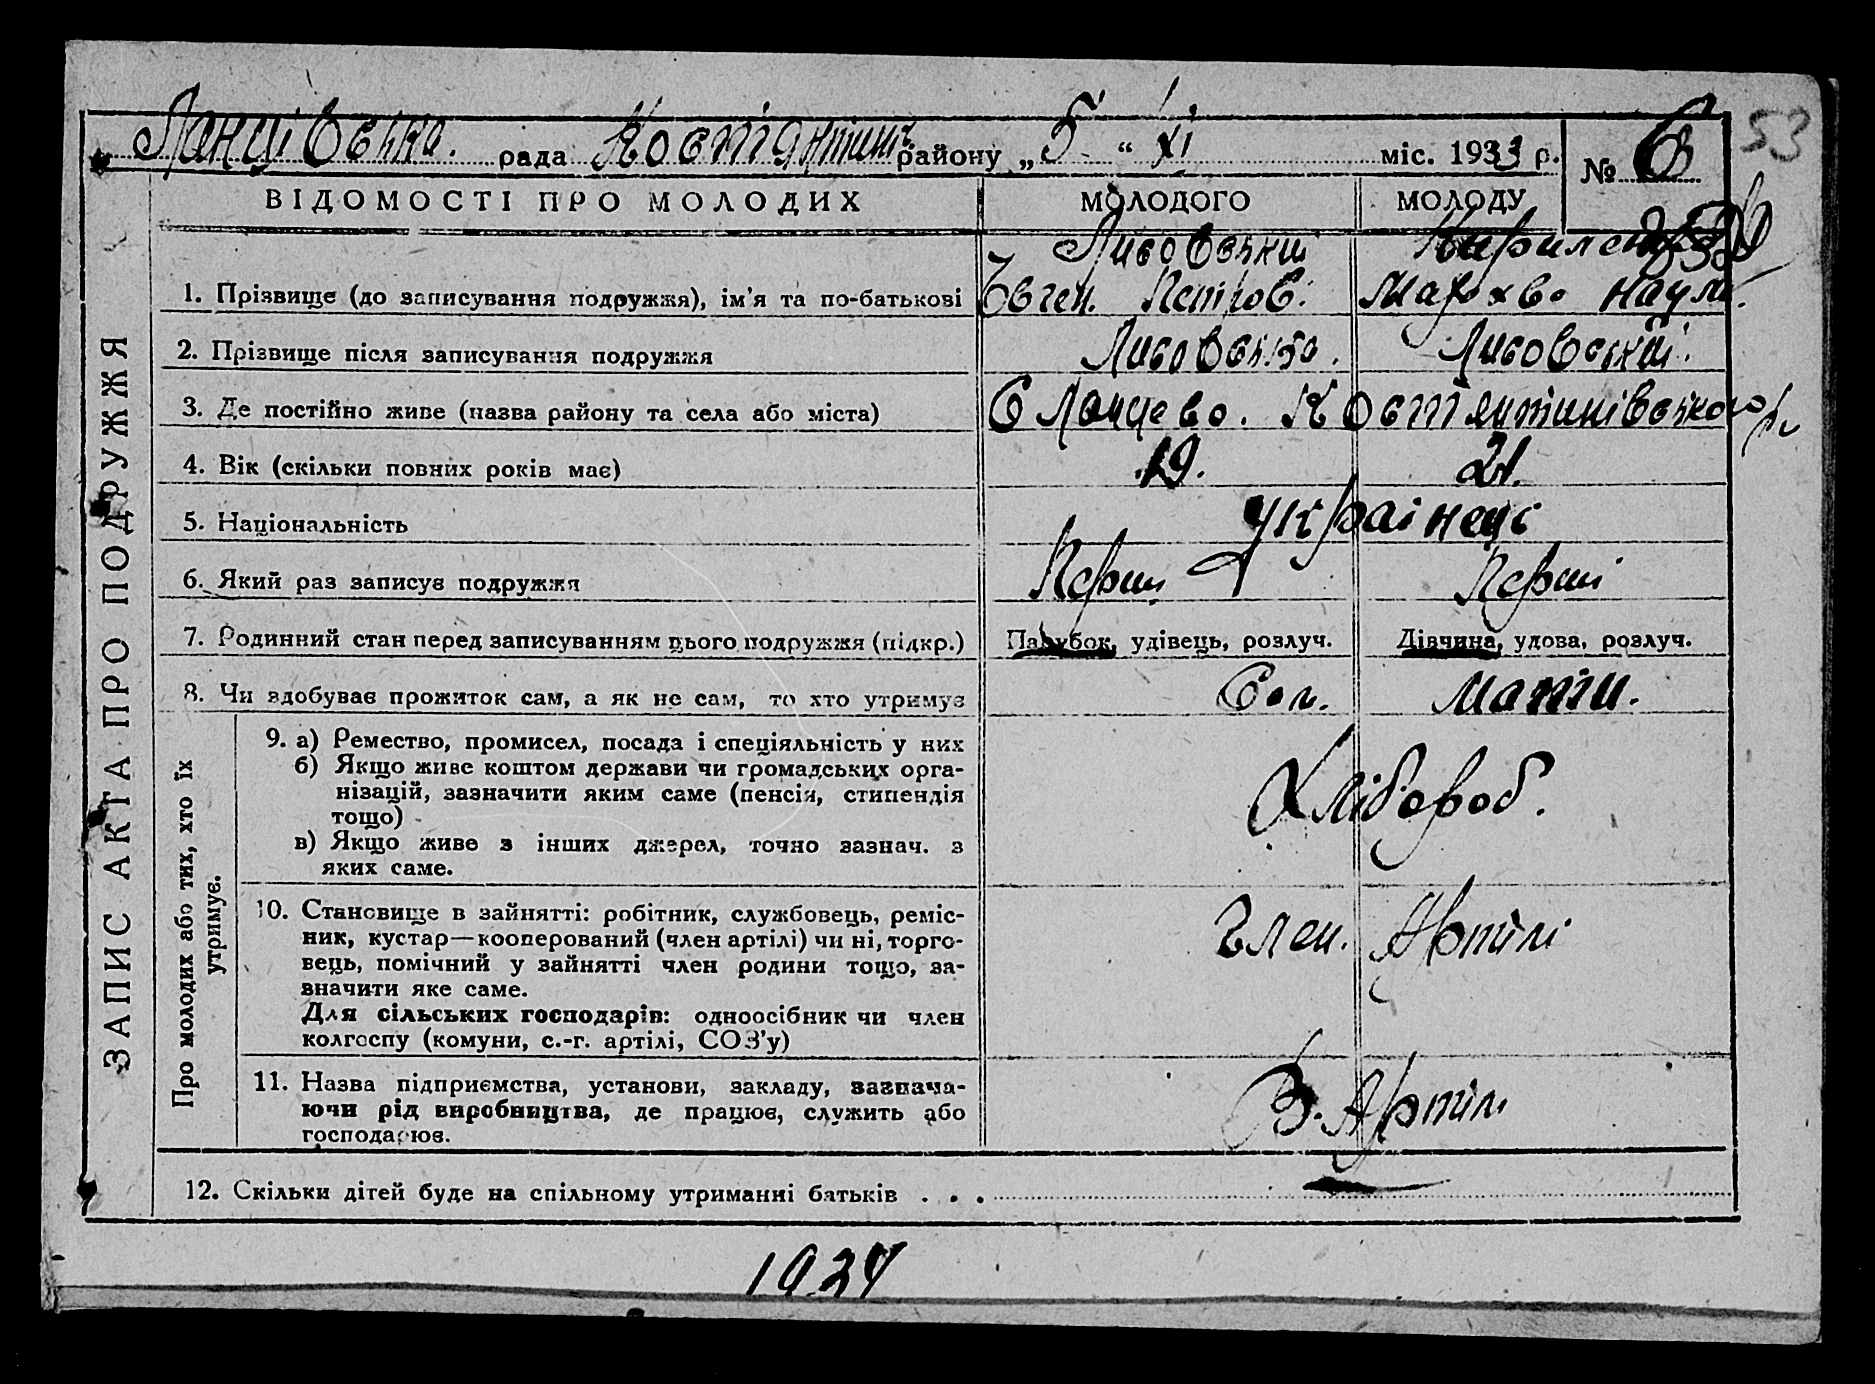 53
Ланцівська рада Костянтинів району „5“ XI міс. 1933 р. № 6
ЗАПИС АКТА ПРО ПОДРУЖЖЯ
ВІДОМОСТІ ПРО МОЛОДИХ МОЛОДОГО МОЛОДУ
Лисовський
1. Прізвище (до записування подружжя), ім’я та по-батькові Євген. Петров. Мархва Наум.
2. Прізвище після записування подружжя Лисовський.
3. Де постійно живе (назва району та села або міста) С Ланцево. Костянтинівського р.
4. Вік (скільки повних років має) 19. 21.
5. Національність Украінець
6. Який раз записує подружжя Перший Перший
7. Родинний стан перед записуванням цього подружжя (підкр.) Парубок, удівець, розлуч. Дівчина, удова, розлуч.
8. Чи здобував прожиток сам, а як не сам, то хто утримує Сам. Мати.
Про молодих або тих, хто їх
утримує.
9. а) Ремество, промисел, посада і спеціяльність у них
б) Якщо живе коштом держави чи громадських орга-
нізацій, зазначити яким саме (пенсія, стипендія
тощо)
в) Якщо живе з інших джерел, точно зазнач. з
яких саме.
Хлібороб.
10. Становище в зайнятті: робітник, службовець, реміс-
ник, кустар—кооперований (член артілі) чи ні, торго-
вець, помічний у зайнятті член родини тощо, за-
значити яке саме.
Для сільських господарів: одноосібник чи член
колгоспу (комуни, с.-г. артілі, СОЗ’у)
Член. Артілі
11. Назва підприємства, установи, закладу, зазнача-
ючи рід виробництва, де працює, служить або
господарює.
В. Артілі
12. Скільки дітей буде на спільному утриманні батьків . . .
1934